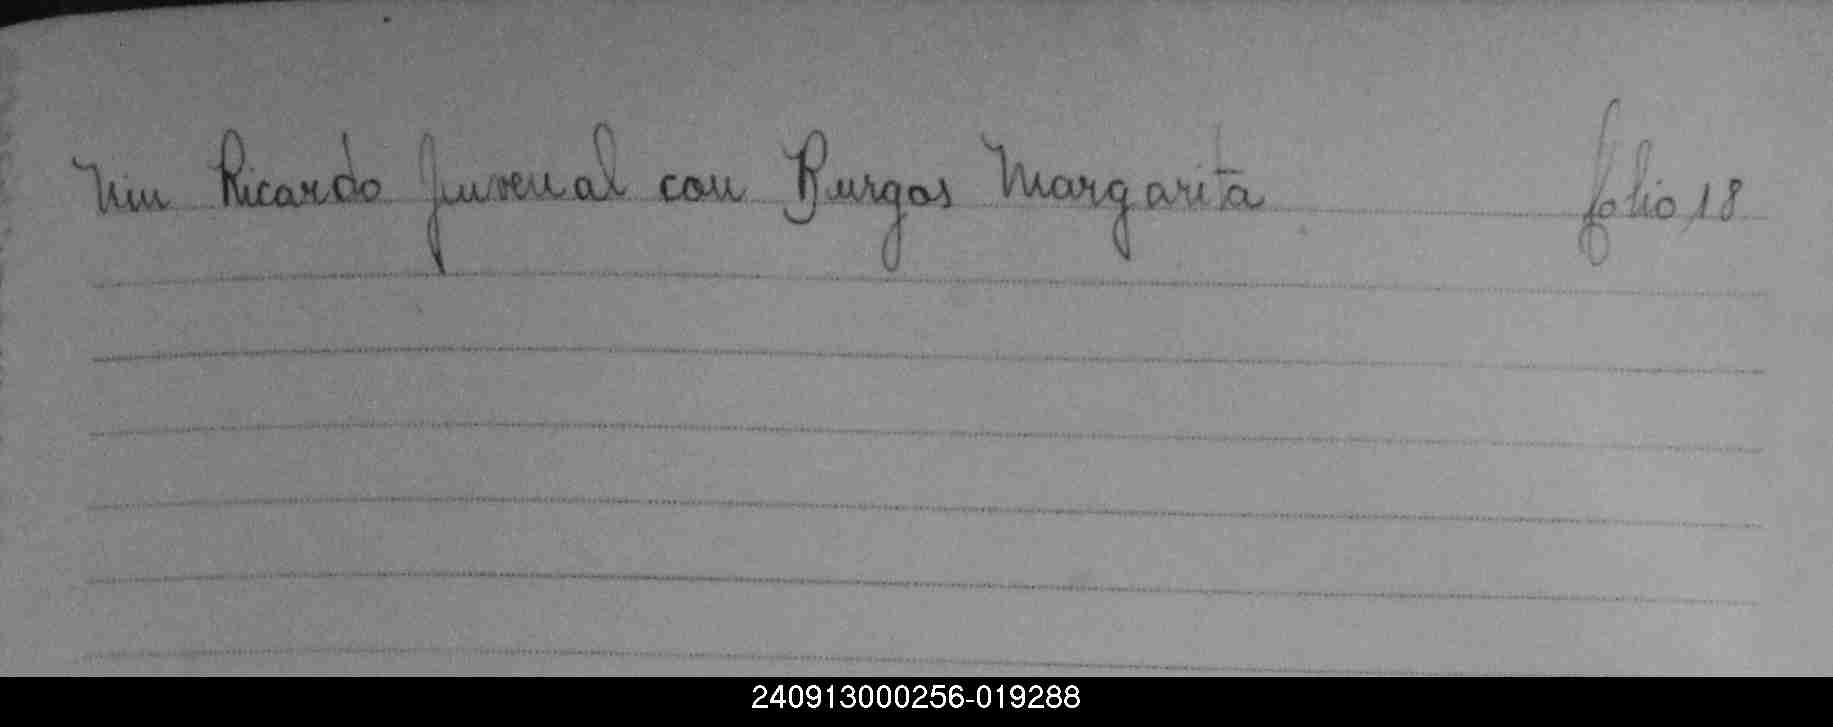 Nin Ricardo Juvenal con Burgos Margarita folio 18
240913000256-019288